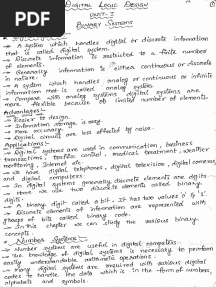 PDF
DIGITAL LOGIC DESIGN
UNIT-I
BINARY SYSTEMS
→ A system which handles digital or discrete information
that is called digital system.
→ Discrete information is restricted to a finite number
of elements.
→ Generally information is either continuous or discrete
in nature.
→ A system which handles analog or continuous or infinite
information that is called analog system.
→ Compare with analog systems digital systems are
more flexible because of limited number of elements.
Advantages:-
→ Easier to design.
→ Information storage is easy.
→ More accuracy
→ Digital circuits are less affected by noise.
Applications:-
→ Digital systems are used in communication, business
transactions, traffic control, medical treatment, weather
monitoring, Internet etc.
→ We have digital telephones, digital television, digital cameras
and digital computers
→ In digital systems generally discrete elements are digits.
→ Here we can two discrete elements called binary
digits.
→ A binary digit called a bit. It has two values '0' & '1'.
→ Discrete elements of information are represented with
groups of bits called binary code.
→ In this chapter we can study the various binary
concepts.
→ Number Systems:-
→ Number systems are useful in digital computers.
→ The knowledge of digital systems is necessary to perform
easily understandable, arithmetic operations.
→ Many digital systems are required with various digital
codes to handle the data which is in the form of numbers,
alphabets and symbols.